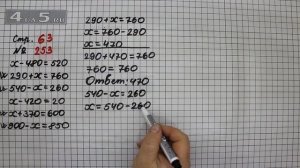 4 5
Стр. 63
№ 253
x-480=520
290+x=760
540-x=260
x-420=20
x+370=600
900-x=850
290+x=760
x=760-290
x=470
290+470=760
760=760
Ответ:470
540-x=260
x=540-260